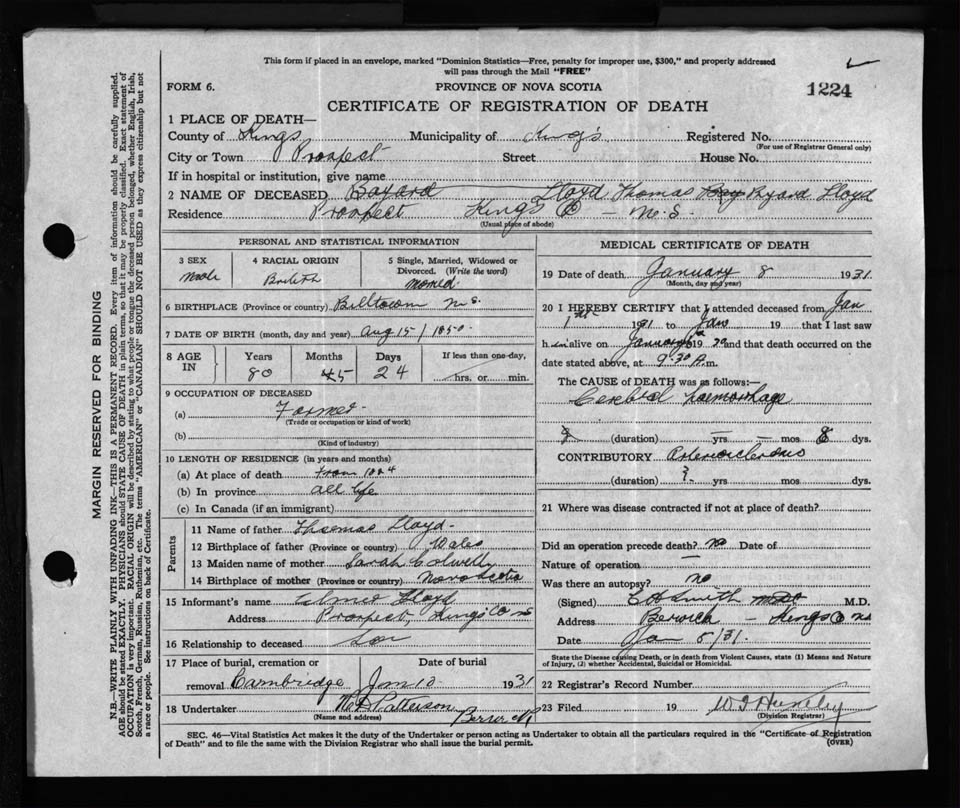 This form if placed in an envelope, marked "Dominion Statistics—Free, penalty for improper use, $300," and properly addressed
will pass through the Mail "FREE"
FORM 6.
PROVINCE OF NOVA SCOTIA
1224
CERTIFICATE OF REGISTRATION OF DEATH
1 PLACE OF DEATH—
County of Kings Municipality of Kings Registered No.
(For use of Registrar General only)
City or Town Prospect Street House No.
If in hospital or institution, give name
2 NAME OF DECEASED Bayard Lloyd Thomas Byard Lloyd
Residence Prospect Kings Co — N.S.
(Usual place of abode)
PERSONAL AND STATISTICAL INFORMATION
3 SEX 4 RACIAL ORIGIN 5 Single, Married, Widowed or
Divorced. (Write the word)
Male British Married
6 BIRTHPLACE (Province or country) Billtown N S.
7 DATE OF BIRTH (month, day and year) Aug 15 / 1850
8 AGE IN Years Months Days If less than one day,
80 5 24 hrs. or min.
9 OCCUPATION OF DECEASED
(a) Farmer
(Trade or occupation or kind of work)
(b)
(Kind of industry)
10 LENGTH OF RESIDENCE (in years and months)
(a) At place of death from 1884
(b) In province all life
(c) In Canada (if an immigrant)
Parents
11 Name of father Thomas Lloyd
12 Birthplace of father (Province or country) Wales
13 Maiden name of mother Sarah
14 Birthplace of mother (Province or country) Nova Scotia
15 Informant's name Elmer Lloyd
Address Prospect, Kings Co NS
16 Relationship to deceased Son
17 Place of burial, cremation or Date of burial
removal Cambridge Jan 10 1931
18 Undertaker Patterson
(Name and address)
MEDICAL CERTIFICATE OF DEATH
19 Date of death January 8 1931
(Month, day and year)
20 I HEREBY CERTIFY that I attended deceased from Jan
1st 1931 to Jan 19 that I last saw
him alive on January 19 and that death occurred on the
date stated above, at 9.30 P.m.
The CAUSE OF DEATH was as follows:—
Cerebral haemorrhage
(duration) — yrs — mos 8 dys.
CONTRIBUTORY Arteriosclerosis
?
21 Where was disease contracted if not at place of death?
Did an operation precede death? no Date of
Nature of operation —
Was there an autopsy? no
(Signed) Smith M.D.
Address Berwick — Kings Co NS
Date /31.
State the Disease causing Death, or in death from Violent Causes, state (1) Means and Nature
of Injury, (2) whether Accidental, Suicidal or Homicidal.
22 Registrar's Record Number
23 Filed 19 Huntley
(Division Registrar)
SEC. 46—Vital Statistics Act makes it the duty of the Undertaker or person acting as Undertaker to obtain all the particulars required in the "Certificate of Registration
of Death" and to file the same with the Division Registrar who shall issue the burial permit.
(OVER)
MARGIN RESERVED FOR BINDING
N.B.—WRITE PLAINLY WITH UNFADING INK—THIS IS A PERMANENT RECORD. Every item of information should be carefully supplied.
AGE should be stated EXACTLY. PHYSICIANS should STATE CAUSE OF DEATH in plain terms, so that it may be properly classified. Exact statement of
OCCUPATION is very important. RACIAL ORIGIN will be described by stating to what people or tongue the deceased person belonged, whether English, Irish,
Scotch, French, German, Russian, Ruthenian, etc. The terms "AMERICAN" or "CANADIAN" SHOULD NOT BE USED as they express citizenship but not
a race or people. See instructions on back of Certificate.